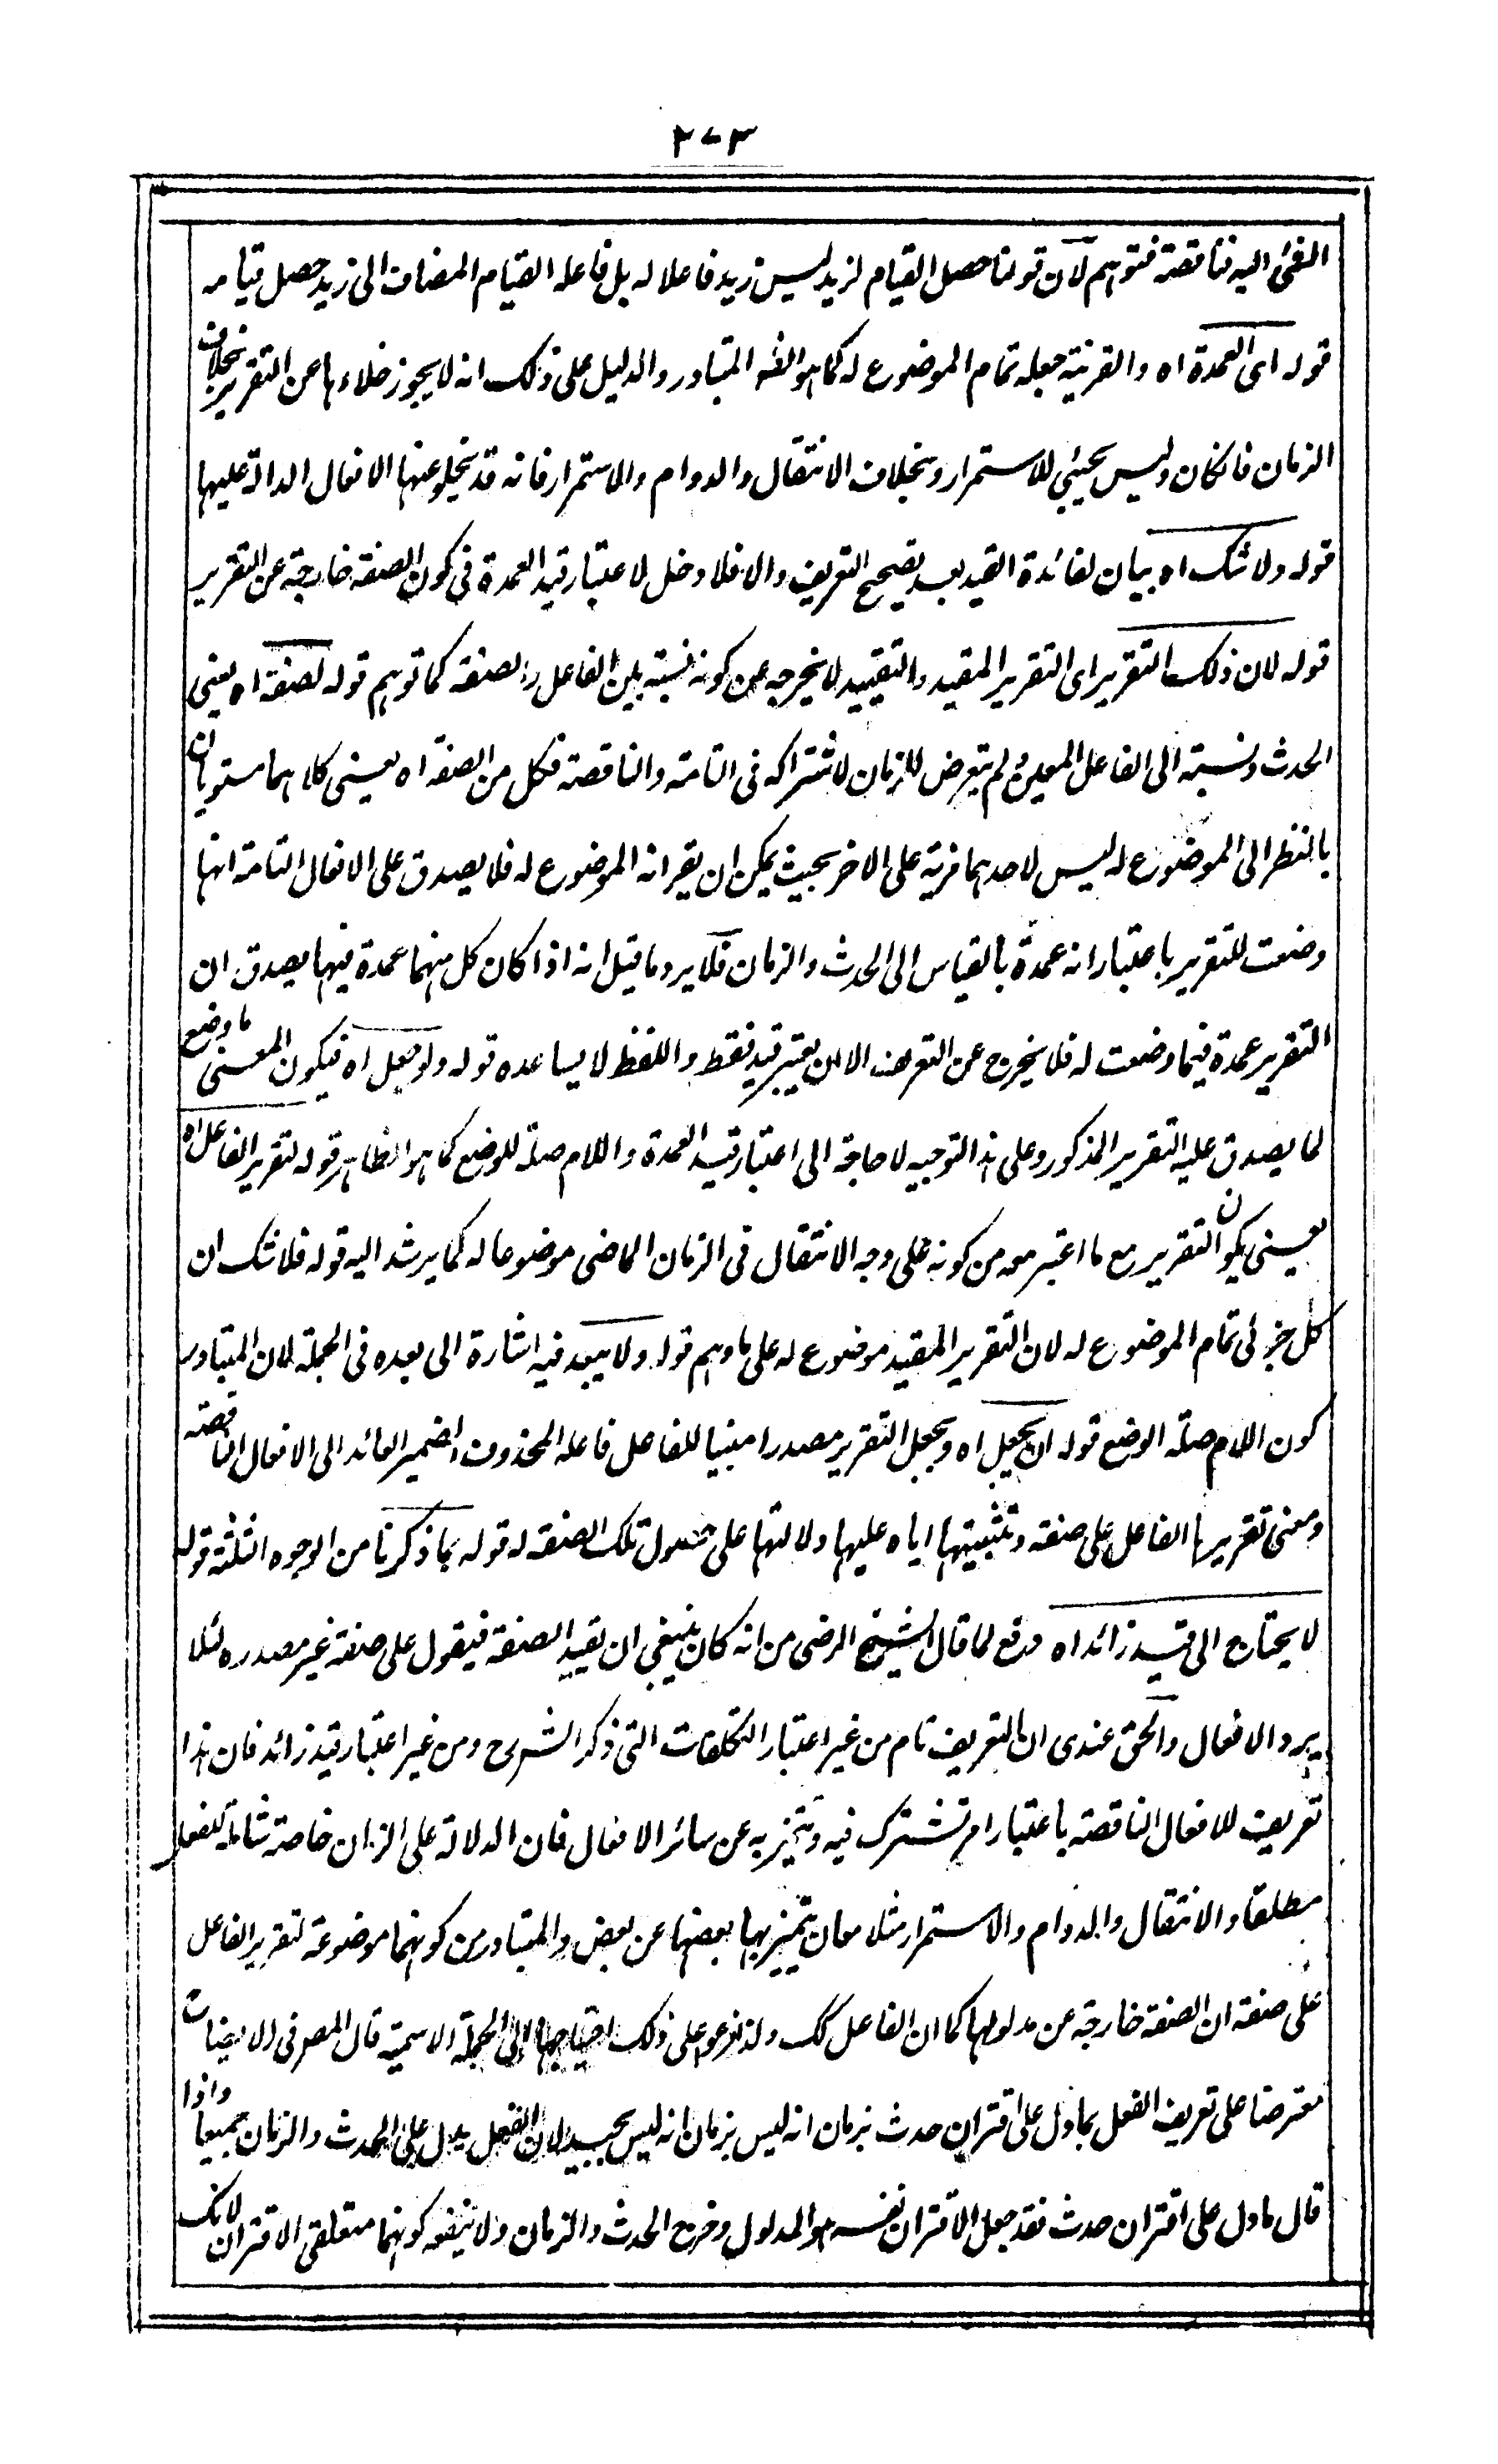 ٣٧٣
الفئ اليه ناقصة فتوهم لان قولنا حصل القيام لزيد ليس زيد فاعلا له بل فاعله القيام المضاف الى زيد حصل قيامه
قوله اى العمدة اه والقرينة جعله تمام الموضوع له كما هو المتبادر والدليل على ذلك انه لا يجوز خلاءها عن التقرير بخلاف
الزمان فان كان وليس يجيئ للاستمرار وبخلاف الانتقال والدوام والاستمرار فانه قد يخلو عنها الافعال الدالة عليها
قوله ولا شك اه بيان لفائدة القيد بعد تصحيح التعريف والا فلا دخل لاعتبار قيد العمدة فى كون الصفة خارجة عن التقرير
قوله لان ذلك التقرير اى التقرير المقيد والتقييد لا يخرجه عن كونه نسبة بين الفاعل والصفة كما توهم قوله لصفة اه يعنى
الحدث ونسبته الى الفاعل المعين ولم يتعرض للزمان لاشتراكه فى التامة والناقصة فكل من الصفة اه يعنى كلاهما مستويان
بالنظر الى الموضوع له ليس لاحدهما مزية على الاخر بحيث يمكن ان يقر انه الموضوع له فلا يصدق على الافعال التامة انها
وضعت للتقرير باعتبار انه عمدة بالقياس الى الحدث والزمان فلا يرد ما قيل انه اذا كان كل منهما عمدة فيها يصدق ان
التقرير عمدة فيما وضعت له فلا يخرج عن التعريف الا ان يعتبر قيد فقط واللفظ لا يساعده قوله ولو جعل اه فيكون المعنى ما وضع
لما يصدق عليه التقرير المذكور وعلى هذا التوجيه لا حاجة الى اعتبار قيد العمدة واللام صلة للوضع كما هو الظاهر قوله لتقرير الفاعل اه
يعنى يكون التقرير مع ما اعتبر معه من كونه على وجه الانتقال فى الزمان الماضى موضوعا له كما يرشد اليه قوله فلا شك ان
كل جزئى تمام الموضوع له لان التقرير المقيد موضوع له على ما وهم قوله ولا يبعد فيه اشارة الى بعده فى الجملة لان المتبادر
كون اللام صلة الوضع قوله ان يجعل اه ويجعل التقرير مصدرا مبنيا للفاعل فاعله المحذوف الضمير العائد الى الافعال الناقصة
ومعنى تقريرها الفاعل على صفة وتثبيتها اياه عليها دلالتها على حصول تلك الصفة له قوله بما ذكرنا من الوجوه الثلثة قوله
لا يحتاج الى قيد زائد اه دفع لما قال الشيخ الرضى من انه كان ينبغى ان يقيد الصفة فيقول على صفة غير مصدره لئلا
يرد الافعال والحق عندى ان التعريف تام من غير اعتبار التكلفات التى ذكر الشرح ومن غير اعتبار قيد زائد فان هذا
تعريف للافعال الناقصة باعتبار امر تشترك فيه وتتميز به عن سائر الافعال فان الدلالة على الزمان خاصة شاملة للفعل
مطلقا والانتقال والدوام والاستمرار مثلا معان يتميز بها بعضها عن بعض والمتبادر من كونهما موضوعة لتقرير الفاعل
على صفة ان الصفة خارجة عن مدلولها كما ان الفاعل كك ولذا فرعوا على ذلك احتياجها الى الجملة الاسمية قال المص فى الايضاح
معترضا على تعريف الفعل بما دل على اقتران حدث بزمان انه ليس بزمان انه ليس بجيد لان الفعل يدل على الحدث والزمان جميعا واذا
قال ما دل على اقتران حدث فقد جعل الاقتران نفسه هو المدلول وخرج الحدث والزمان ولا ينفعه كونهما متعلقى الاقتران لانك